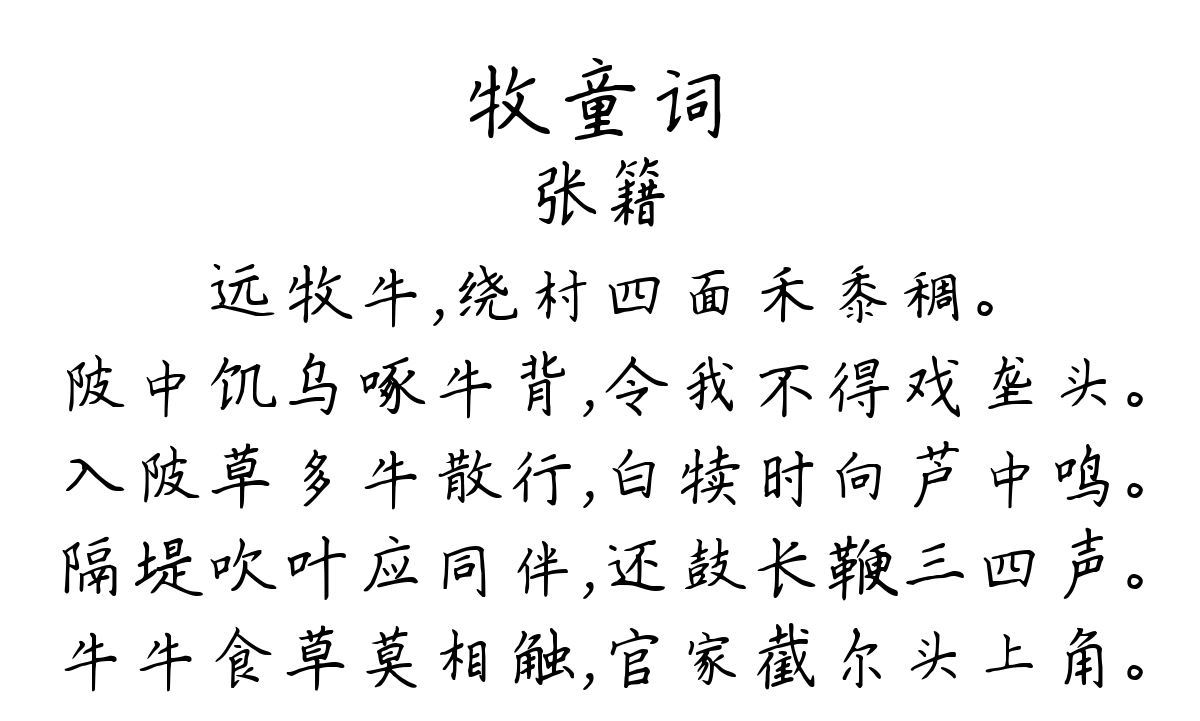 牧童词
张籍
远牧牛,绕村四面禾黍稠。
陂中饥乌啄牛背,令我不得戏垄头。
入陂草多牛散行,白犊时向芦中鸣。
隔堤吹叶应同伴,还鼓长鞭三四声。
牛牛食草莫相触,官家截尔头上角。